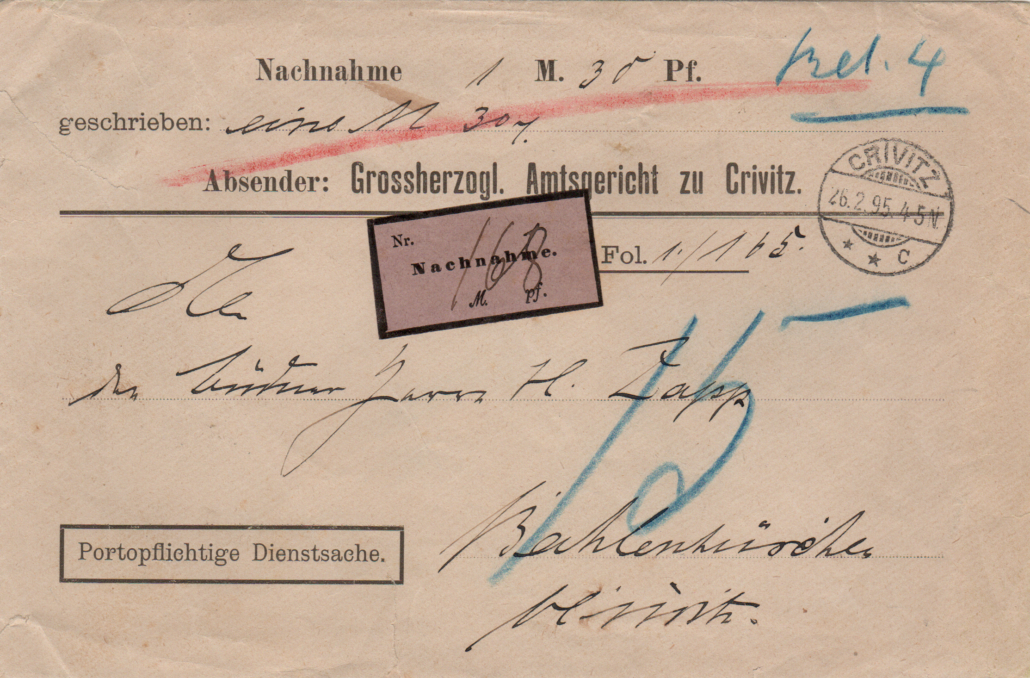 Nachnahme 1 M. 30 Pf.
4
geschrieben: eine M 30
Absender: Grossherzogl. Amtsgericht zu Crivitz.
CRIVITZ
26.2.95. 4-5N.
* * c
Nr. 168
Nachnahme.
M. pf.
Fol. 1/165.
An
den Büdner Herrn H. Zapp
15
Bahlenhüschen
Portopflichtige Dienstsache.